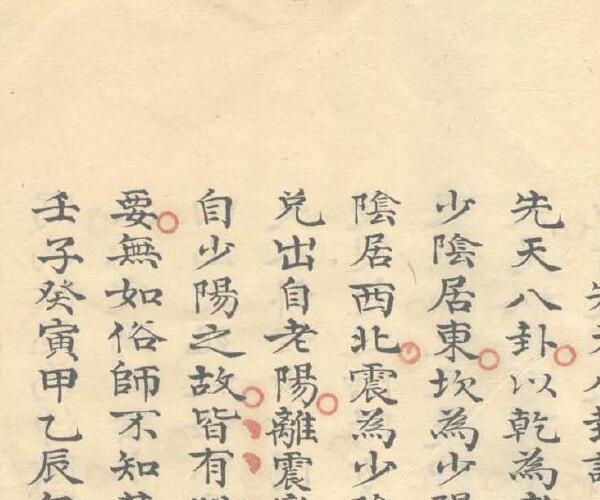 先天八卦以乾為
少陰居東坎為少陽
陰居西北震為少陰
兌出自老陽離震
自少陽之故皆有
要無如俗師不知
壬子癸寅甲乙辰